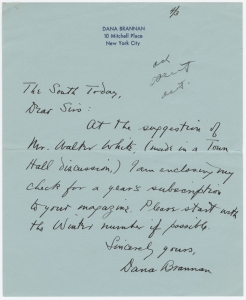 4/8
DANA BRANNAN
10 Mitchell Place
New York City
The South Today,
Dear Sirs:
At the suggestion of
Mr. Walter White, (made in a Town
Hall discussion,) I am enclosing my
check for a year's subscription
to your magazine. Please start with
the Winter number if possible.
Sincerely yours,
Dana Brannan